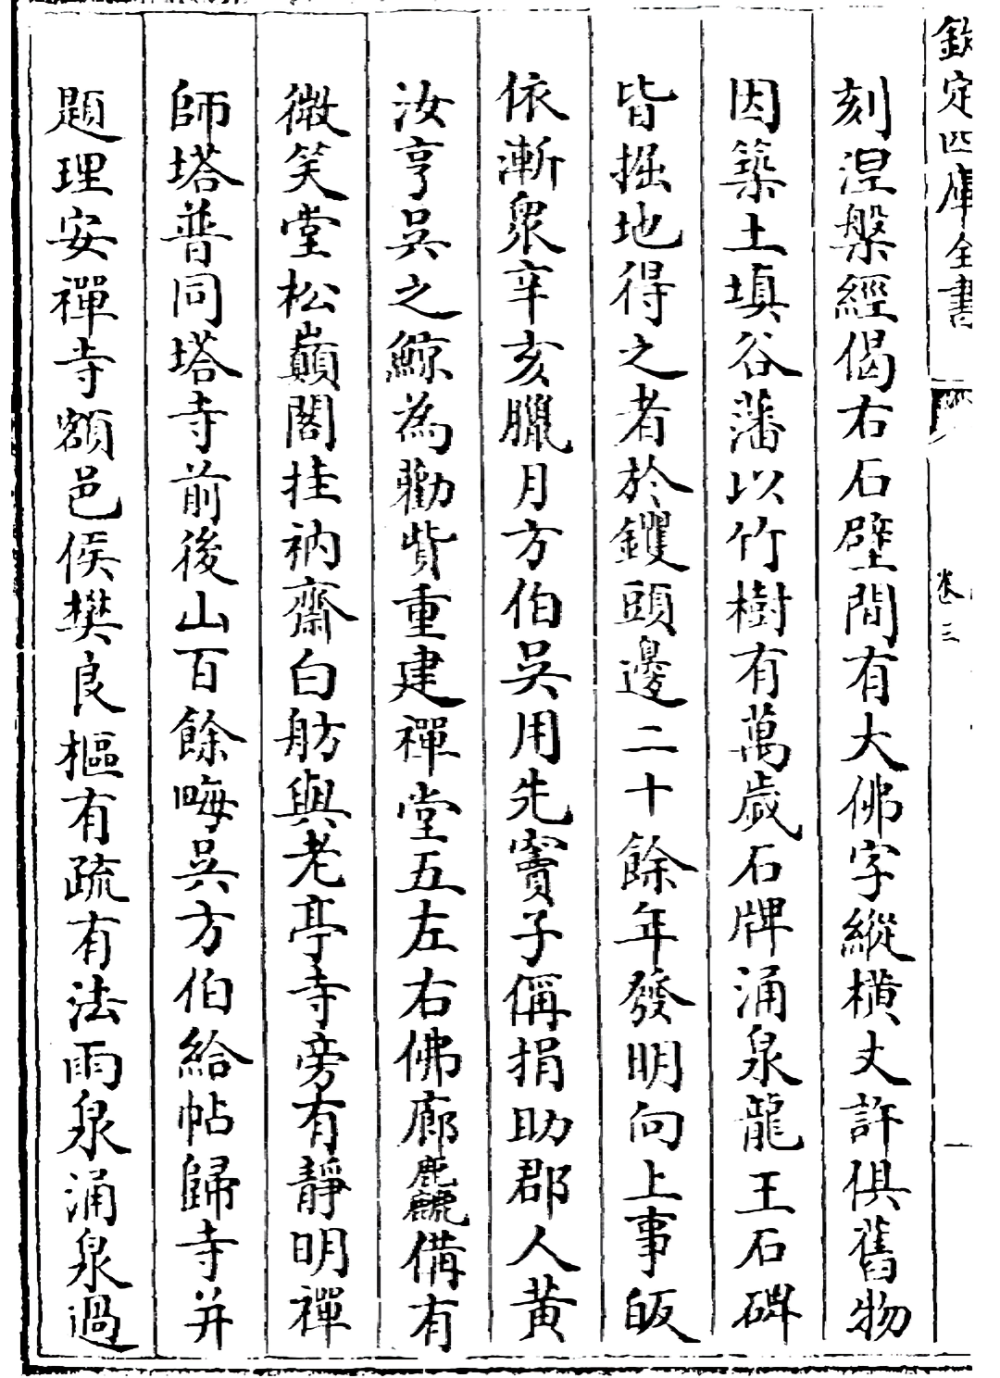 欽定四庫全書
卷三
刻涅槃經偈右石壁間有大佛字縱橫丈許俱舊物
因築土填谷藩以竹樹有萬歲石牌涌泉龍王石碑
皆掘地得之者於钁頭邊二十餘年發明向上事皈
依漸衆辛亥臘月方伯吳用先竇子偁捐助郡人黄
汝亨吳之鯨為勸貲重建禪堂五左右佛廊麤備有
微笑堂松巔閣挂衲齋白舫與老亭寺旁有靜明禪
師塔普同塔寺前後山百餘畮吳方伯給帖歸寺并
題理安禪寺額邑侯樊良樞有疏有法雨泉涌泉過